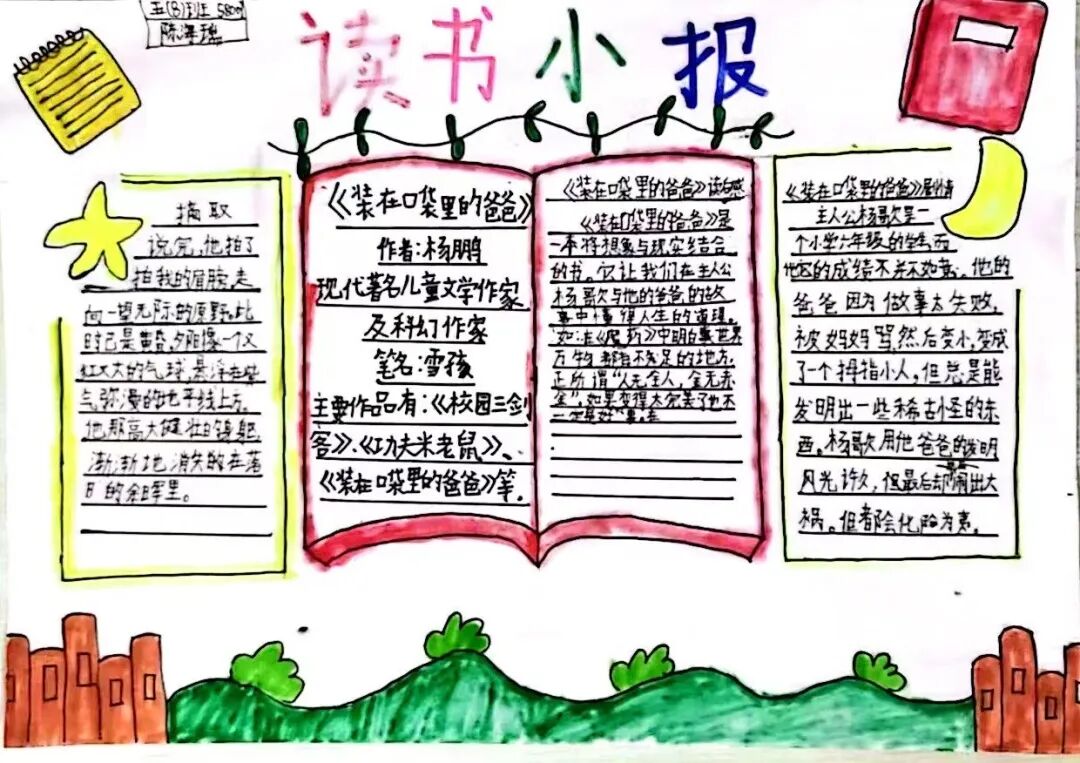 五(8)班
陈海瑰
读书小报
摘取
说完,他拍了
拍我的肩膀,走
向一望无际的原野。此
时已是黄昏,夕阳像一个又
红又大的气球,悬浮在紫
气弥漫的地平线上方。
他那高大健壮的身躯,
渐渐地消失的在落
日的余晖里。
《装在口袋里的爸爸》
作者:杨鹏
现代著名儿童文学作家
及科幻作家
笔名:雪孩
主要作品有:《校园三剑
客》、《功夫米老鼠》、
《装在口袋里的爸爸》等。
《装在口袋里的爸爸》读后感
《装在口袋里的爸爸》是
一本将想象与现实结合
的书。它让我们在主人公
杨歌欠与他的爸爸的故
事中懂得人生的道理。
如:在《魔药》中明白世界
万物都有不满足的地方,
正所谓“人无全人,金无赤
如果变得太完美了也不
一定是好
《装在口袋里的爸爸》
主人公杨歌欠是一
个小学六年级的学生,而
他的成绩不并不如意。他的
爸爸因为做事太失败,
被妈妈骂,然后变小,变成
了一个拇指小人,但总是能
发明出一些稀古怪的东
西。杨歌欠用他爸爸的发明
风光许久,但最后却闹出大
祸。但都会化险为夷。